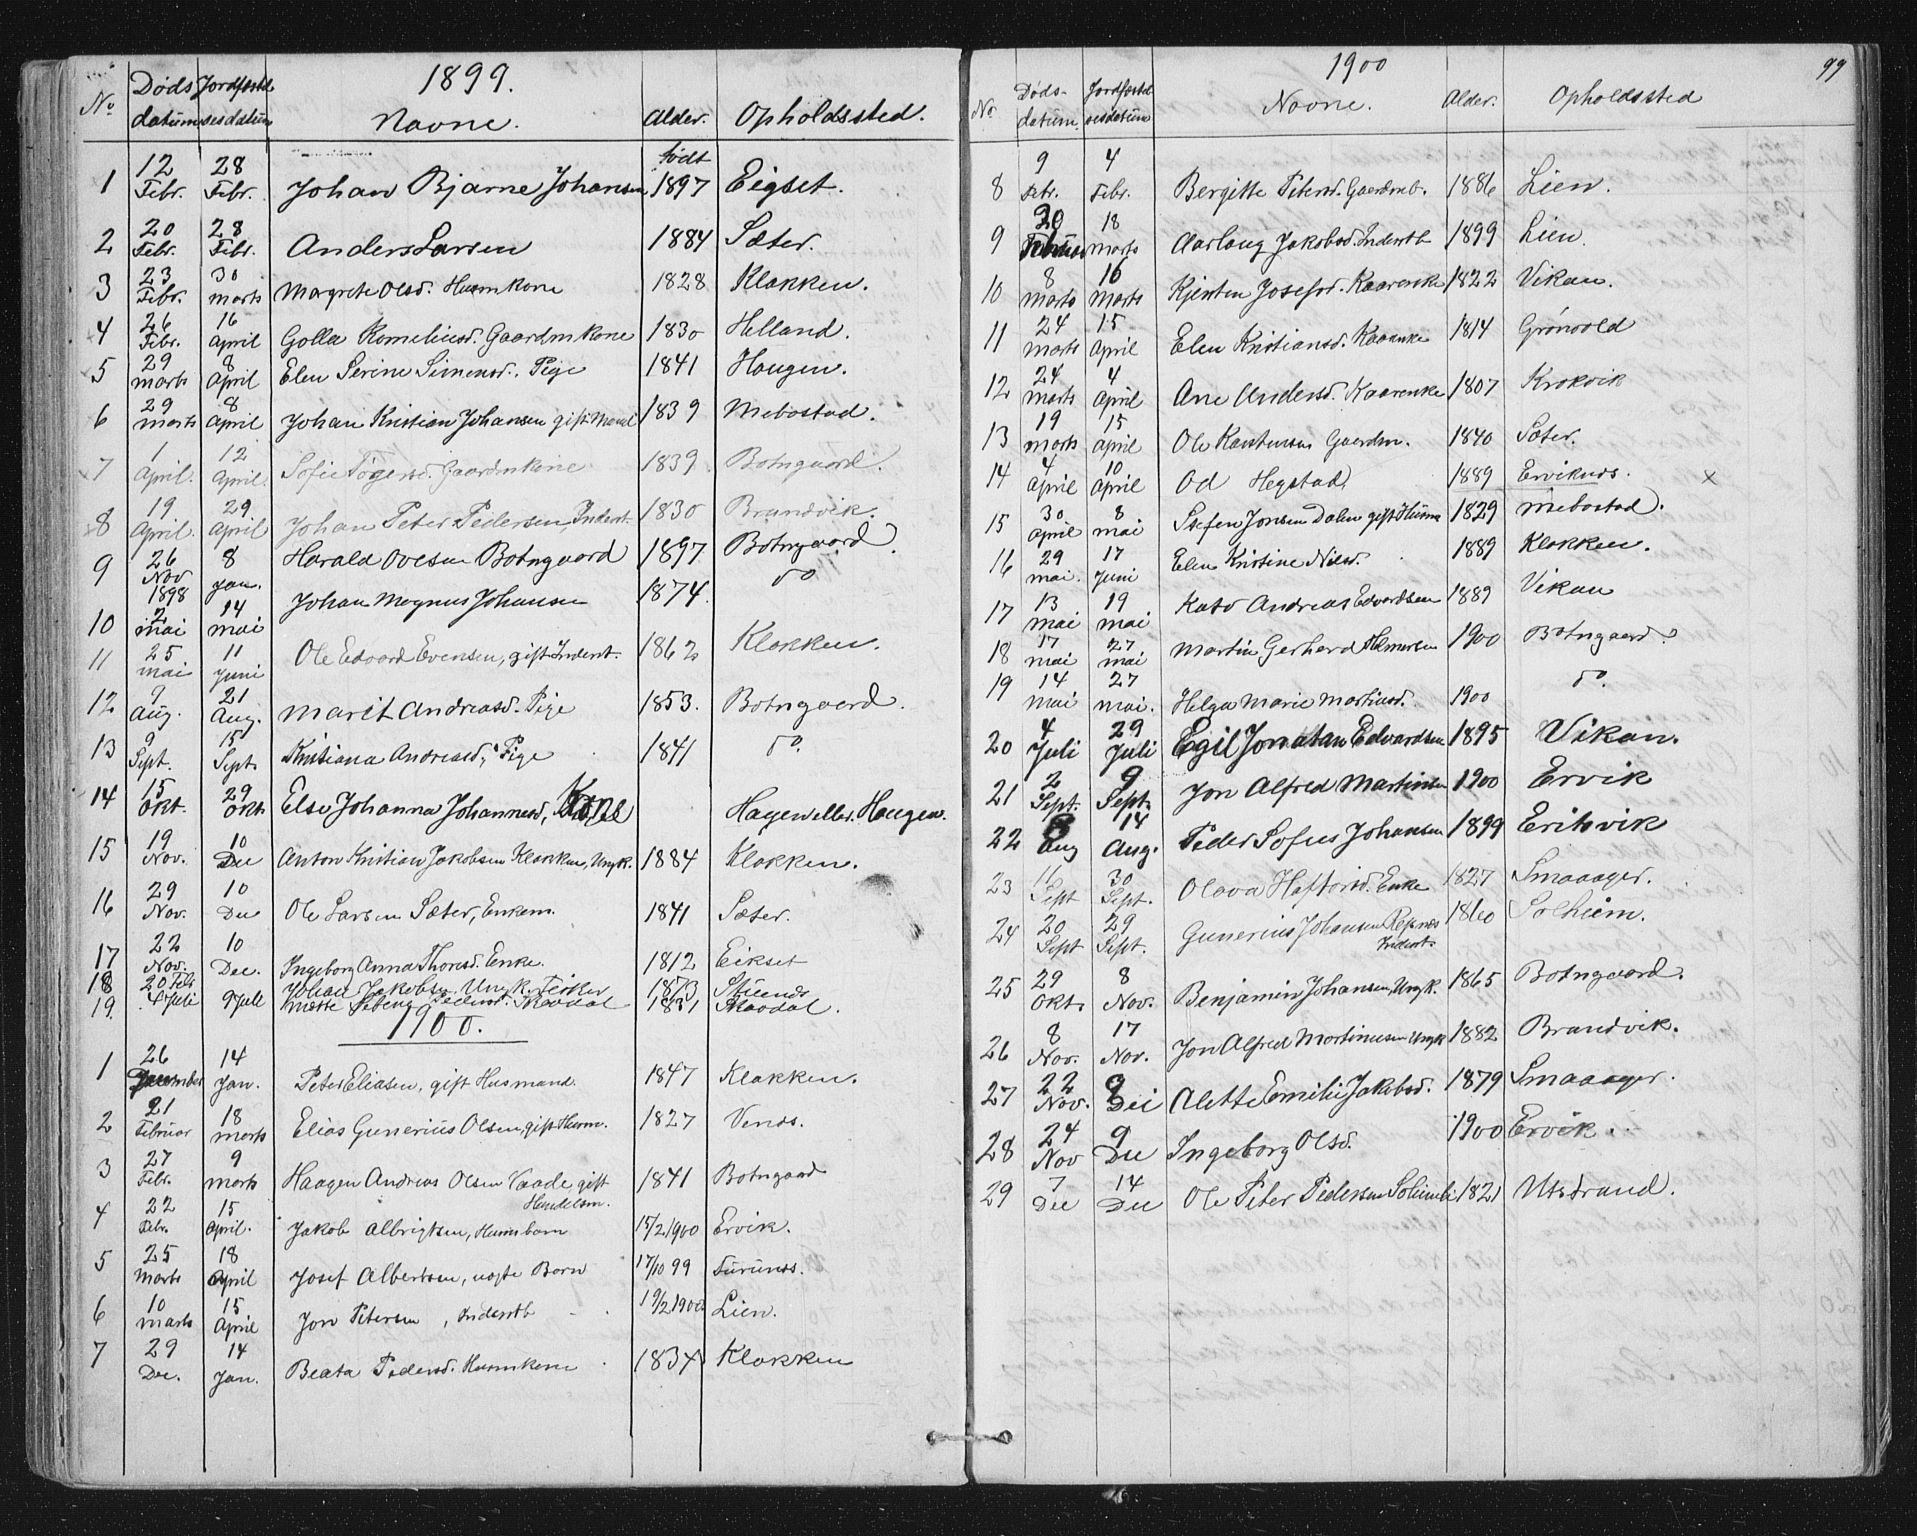 1899.
No Døds datum Jordfæstelsesdatum Navne. Alder. Opholdssted.
1 12 Febr. 28 Febr. Johan Bjarne Johansen født 1897 Eigset.
2 20 Febr. 28 Febr. Anders Larsen 1884 Sæter.
3 23 Febr. 30 marts Margrete Olsd. Husmkone 1828 Klakken.
4 26 Febr. 16 April Golla Korneliusd. Gaardmkone 1830 Helland.
5 29 marts 8 April Elen Serine Simonsd. Pige 1841 Haugen.
6 29 marts 8 April Johan Kristian Johansen gift Mand 1839 Mebostad.
7 1 April. 12 April. Sofie Gaardmkone 1839 Botngaard.
8 19 April. 29 April Johan Peter Pedersen, Inderst. 1830 Brandvik.
9 26 Nov 1898 8 Jan. Harald Ovesen Botngaard 1897 Botngaard.
10 2 mai 14 mai Johan Magnus Johansen 1874. do
11 25 mai 11 Juni Ole Edvard Evensen, gift Inderst. 1862 Klakken.
12 9 Aug. 21 Aug. Marit Andreasd. Pige 1853. Botngaard.
13 9 Sept. 15 Sept. Kristiana Andreasd., Pige 1841 do.
14 15 Okt. 29 Okt. Else Johanna Johannesd., Kone Haugen.
15 19 Nov. 10 Dec Anton Kristian Jakobsen Klakken, Ungk. 1884 Klakken.
16 29 Nov. 10 Dec Ole Larsen Sæter, Enkem. 1841 Sæter.
17 22 Nov. 10 Dec. Ingeborg Anna Thoresd. Enke. 1812 Eikset
18 20 Feb Johan Jakobsen Ungk. Fisker 1873
19. 4 Juli 9 Juli Mette Pedersd. 1831
1900.
1 26 December 14 Jan. Peter Eliasen, gift Husmand. 1847 Klakken.
2 21 Februar 18 marts Elias Gunerius Olsen, gift Husm. 1827 Venes.
3 27 Febr. 9 marts Haagen Andreas Olsen Vaade gift Handelsm. 1841 Botngaard
4 22 Febr. 15 April. Jakob Albrigtsen, Husmbarn 15/2 1900 Ervik.
5 25 marts 18 April Josef Albertsen, uægte Barn 17/10 99
6 10 marts 15 April Jon Petersen, Inderstb 19/2 1900 Lien.
7 29 Dec. 14 Jan. Beata Pedersd. Husmkone 1834 Klakken
1900 99
No Døds-datum. Jordfæstelsesdatum Navne. Alder. Opholdssted
8 9 Febr. 4 Febr. Bergitte Petersd. Gaardmb. 1886 Lien.
9 20 Februar 18 marts Aarlaug Jakobsd. Inderstb 1899 Lien.
10 8 marts 16 marts Kjersten Josefsd. Kaarenke 1822 Vikan.
11 24 marts 15 April Elen Kristiansd. Kaarenke 1814 Grönvold
12 24 marts 4 April Ane Andersd. Kaarenke 1807 Krokvik
13 19 marts 15 April Ole Gaardm. 1840 Sæter.
14 4 April 10 April Od Hegstad, 1889 Erviknes. x
15 30 april 8 mai Steffen Jonsen Dalen gift Husm 1829 Mebostad.
16 29 mai. 17 Juni Elen Kristine Nilsd. 1889 Klakken.
17 13 mai 19 mai Kato Andreas Edvardsen 1889 Vikan
18 17 mai 27 mai Martin Gerhard Helmersen 1900 Botngaard.
19 14 mai 27 mai. Helga Marie Martinsd. 1900 do.
20 4 Juli 29 Juli Egil Jonatan Edvardsen 1895 Vikan.
21 2 Sept. 9 Sept. Jon Alfred Martinsen 1900 Ervik
22 8 Aug 14 Aug. Peder Sofus Johansen 1899 Eriksvik
23 16 Sept 30 Sept. Olava Haftorsd. Enke 1827 Smaaager.
24 20 Sept 29 Sept. Gunerius Johansen Refsnes Inderst. 1860 Solheim.
25 29 Okt. 8 Nov. Benjamin Johansen, Ungk. 1865 Botngaard.
26 8 Nov. 17 Nov. Jon Alfred Martinusen Ungk 1882 Brandvik.
27 22 Nov. 9 Dec Alette Emilie Jakobsd. 1879 Smaaager.
28 24 Nov 9 Dec Ingeborg Olsd. 1900 Ervik.
29 7 Dec 14 Dec Ole Peter Pedersen 1821 Utstrand.